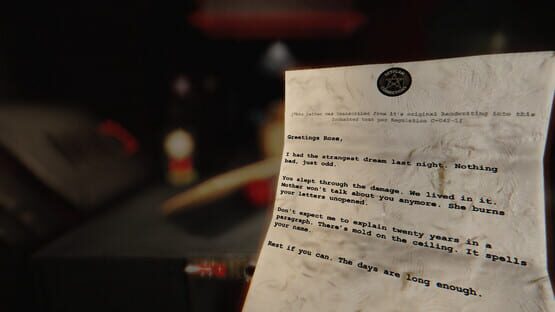 [This letter was transcribed from it's original handwriting into this
formatted text per Regulation C-042-1]
Greetings Rose,
I had the strangest dream last night. Nothing
bad, just odd.
You slept through the damage. We lived in it.
Mother won't talk about you anymore. She burns
your letters unopened.
Don't expect me to explain twenty years in a
paragraph. There's mold on the ceiling. It spells
your name.
Rest if you can. The days are long enough.